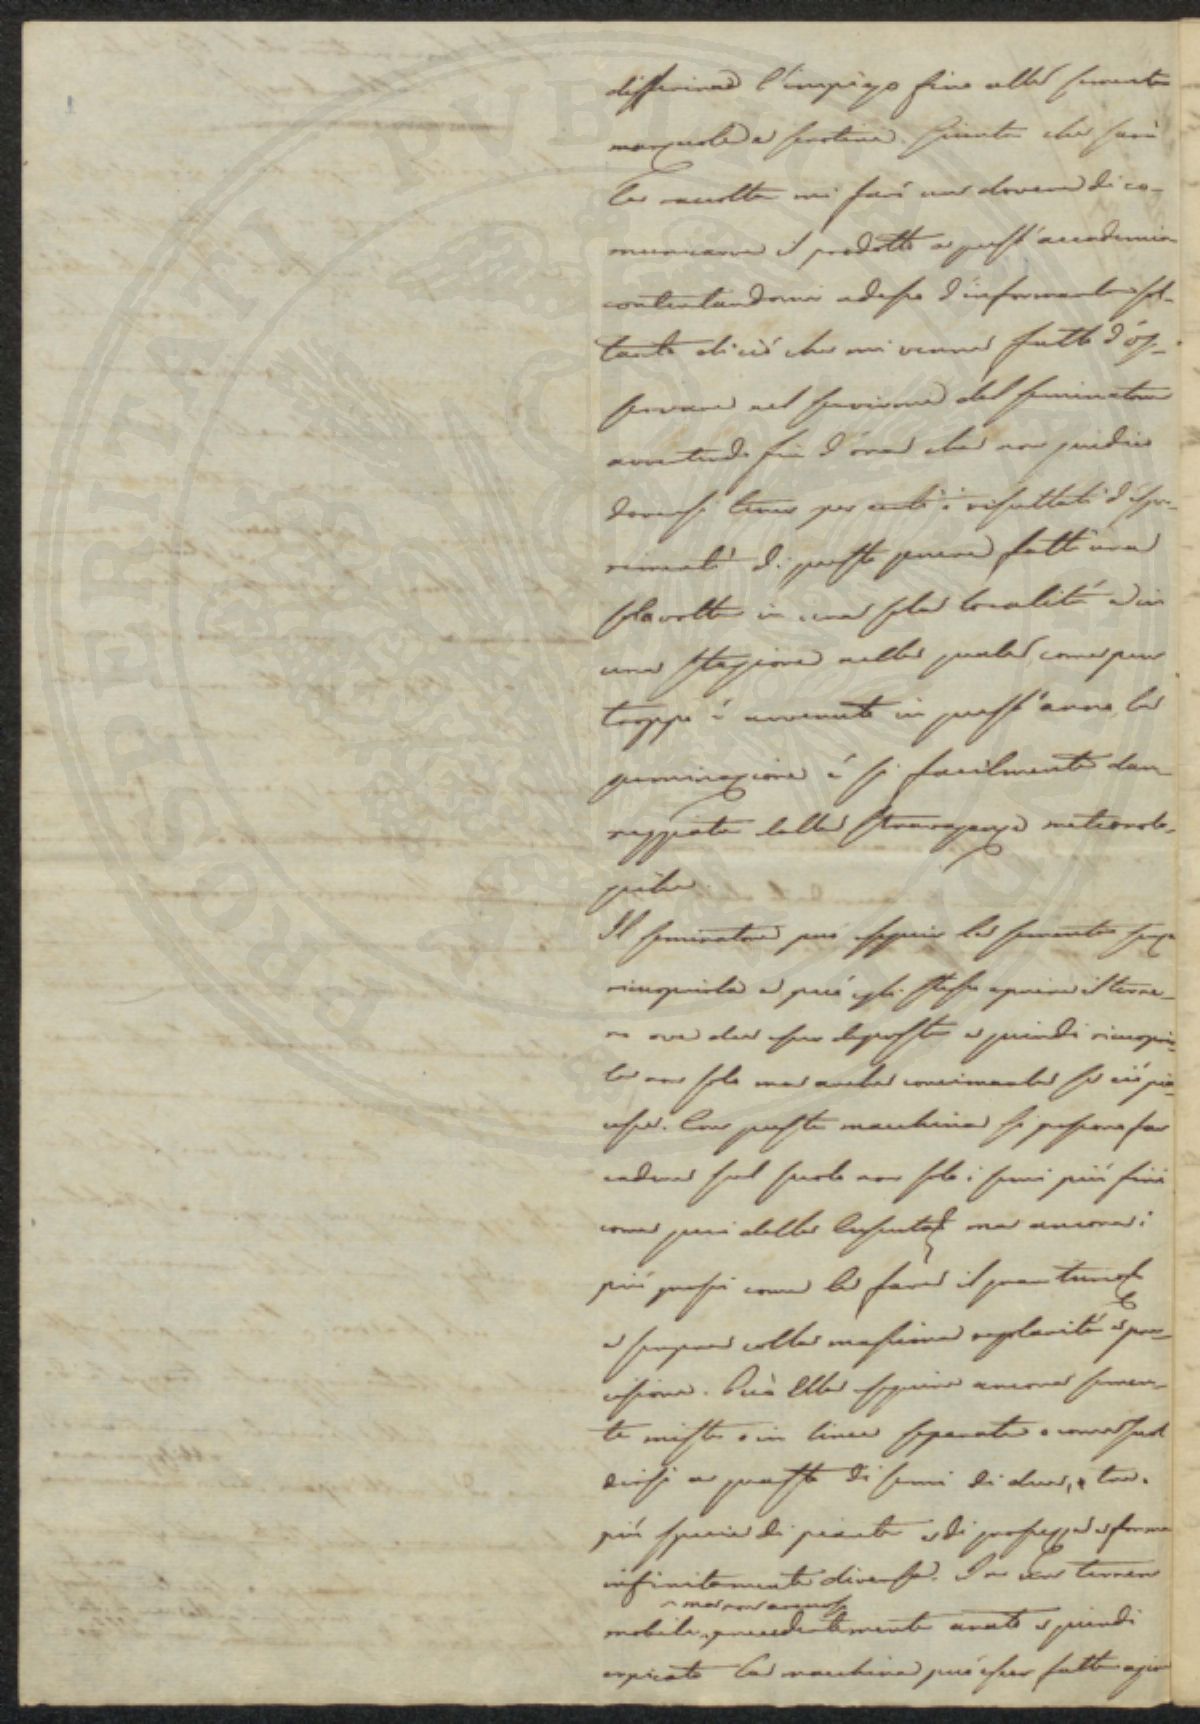 differirne l'impiego fino alle semente
marzuole e serotine. Giunta che sarà
la raccolta mi farò un dovere di co-
municarne il prodotto a quest'accademia
contentandomi adesso d'informarla sol-
tanto di ciò che mi venne fatto d'os-
servare nel servirmi del seminatore
avvertendo fin d'ora che non giudico
doversi tener per certi i risultati d'espe-
rimenti di questo genere fatti una
sola volta in una sola località e in
una stagione nella quale, come pur
troppo è avvenuto in quest'anno, la
germinazione è sì facilmente dan-
neggiata dalle stravaganze meteorolo-
giche.
Il seminatore può eseguir la sementa senza
ricuoprirla e può egli stesso aprire il terre-
no ove dee esser deposta e quindi ricuoprir-
la non solo ma anche concimarla se ciò pia-
cesse. Con questa macchina si possono far
cadere sul suolo non solo i semi più fini
come quei della Lupinella ma ancora i
più grossi come le fave il gran turco
e sempre colla massima regolarità e pre-
cisione. Può Ella eseguire ancora semen-
te miste o in linee separate o come suol
dirsi a questo di semi di due, o tre.
più specie di piante e di grossezza e forma
infinitamente diversa. In un terren
ma non arenoso
mobile, precedentemente arato e quindi
erpicato la macchina può esser fatta agire
PROSPERITATI PVBLICAE